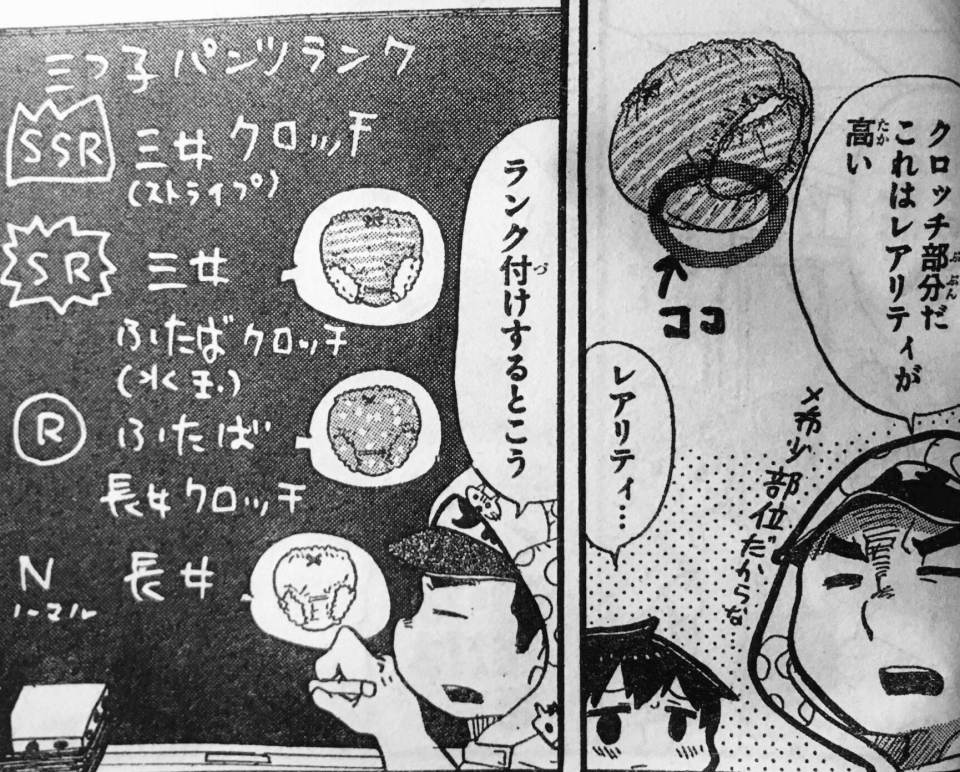 クロッチ部分だ
これはレアリティが
高い
ココ
レアリティ…
×希少部位だからな
ランク付けするとこう
三つ子パンツランク
SSR 三女クロッチ
(ストライプ)
SR 三女
ふたばクロッチ
(水玉)
R ふたば
長女クロッチ
N 長女
ノーマル